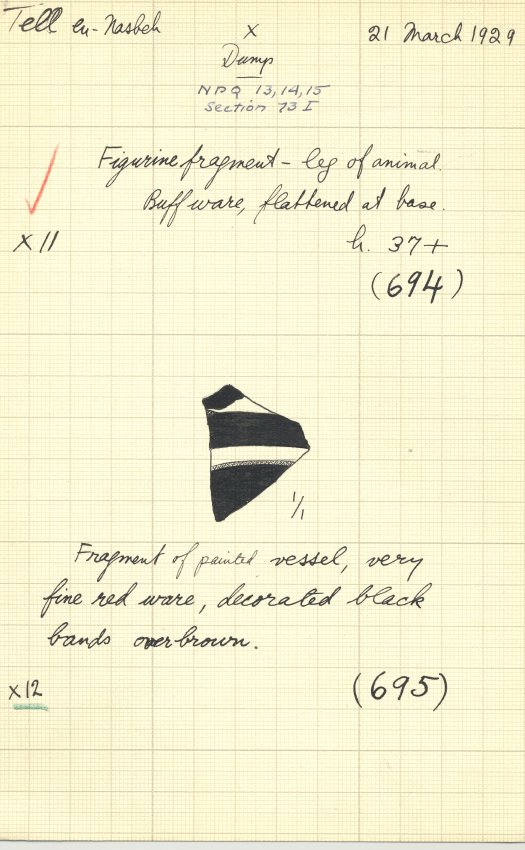 Tell en-Nasbeh
X
21 March 1929
Dump
NPQ 13,14,15
Section 73 I
Figurine fragment - leg of animal.
Buff ware, flattened at base.
x 11
h. 37+
(694)
1/1
Fragment of painted vessel, very
fine red ware, decorated black
bands over brown.
x 12
(695)